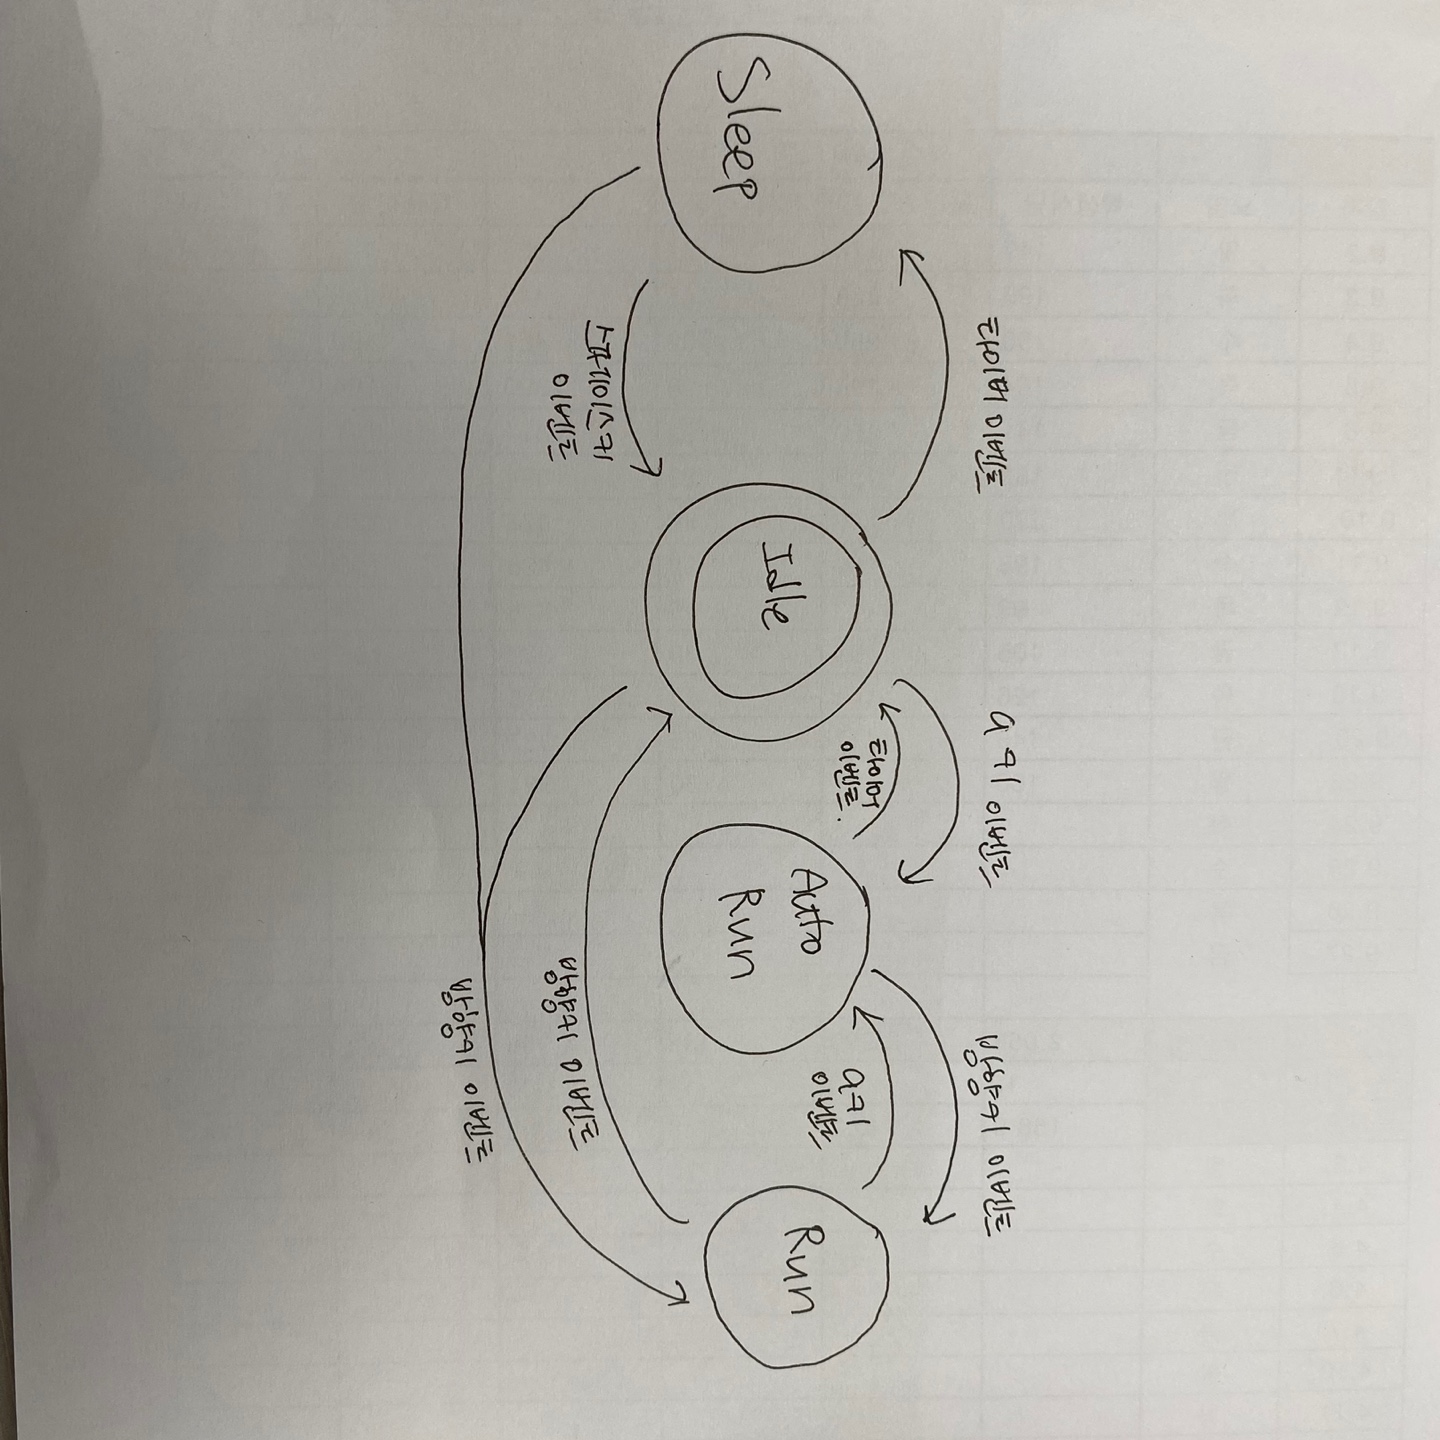 타이머 이벤트
a 키 이벤트
방향키 이벤트
타이머
이벤트.
a키
이벤트
Sleep
Idle
Auto
Run
Run
스페이스키
이벤트
방향키 이벤트
방향키 이벤트